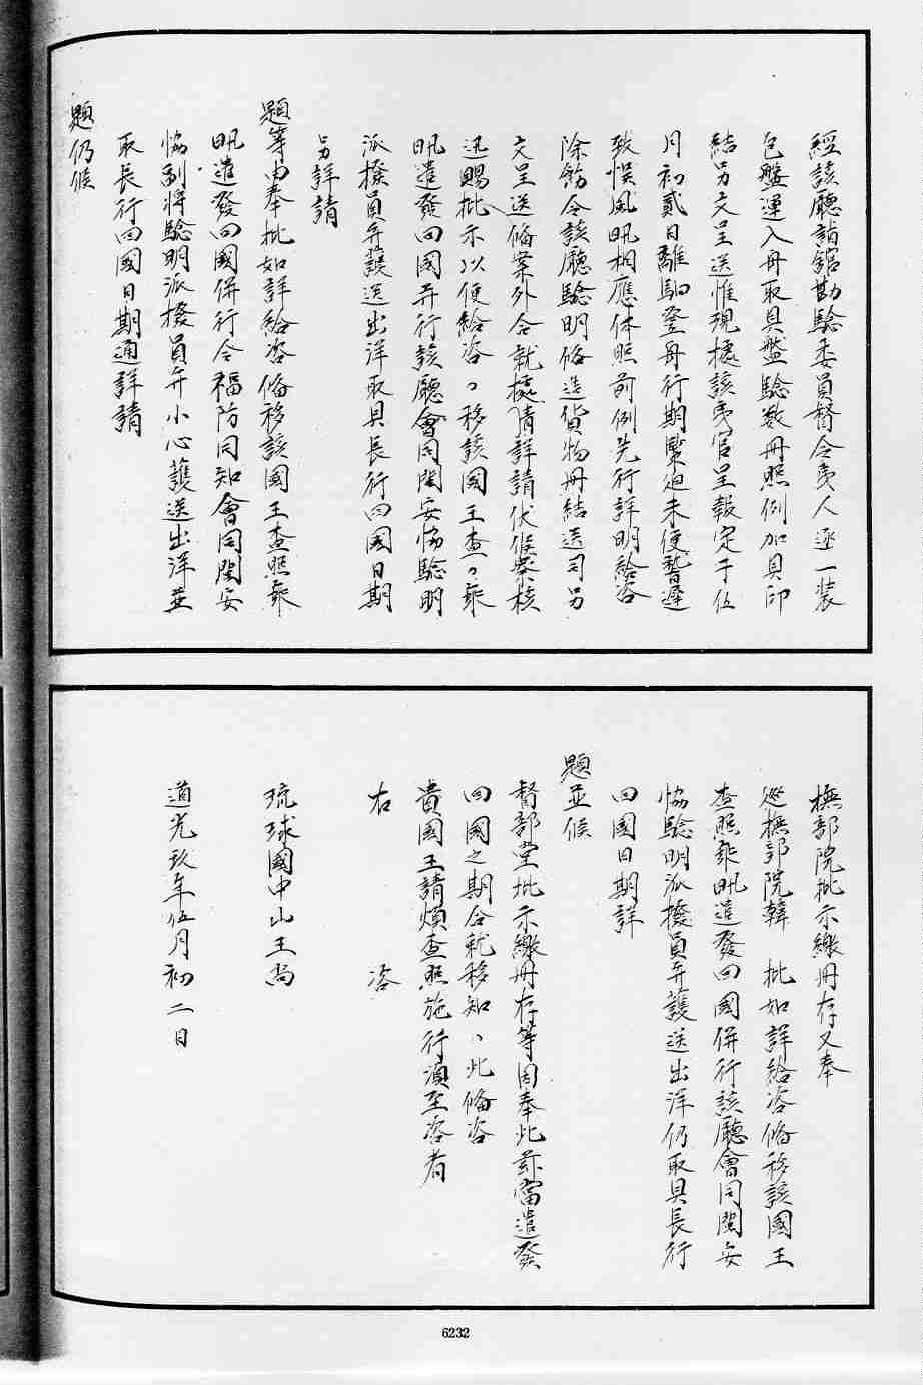 經該廳詣舘勘驗委員督令夷人逐一裝
包盤運入舟取具盤驗数冊照例加具印
結另文呈送惟現據該夷官呈報定于伍
月初貳日離駅登舟行期緊迫未便暫遲
致悞風帆相應休照前例先行詳明給咨
除飭令該廳驗明俻造貨物冊結送司另
文呈送俻案外合就據情詳請伏候察核
迅賜批示以便給咨〻移該國王查〻乘
帆遣發回國并行該廳會同閩安恊驗明
派撥員弁護送出洋取具長行回國日期
另詳請
題等由奉批如詳給咨俻移該國王查照乘
帆遣發回國併行令福防同知會同閩安
恊副將驗明派撥員弁小心護送出洋並
取長行回國日期通詳請
題仍候
撫部院批示繳冊存又奉
廵撫部院韓　批如詳給咨俻移該國王
查照乘帆遣發回國併行該廳會同閩安
恊驗明派撥員弁護送出洋仍取具長行
回國日期詳
題並候
督部堂批示繳冊存等因奉此茲當遣發
回國之期合就移知〻此俻咨
貴國王請煩查照施行湏至咨者
右　　咨
琉球國中山王尚
道光玖年伍月初二日
6232